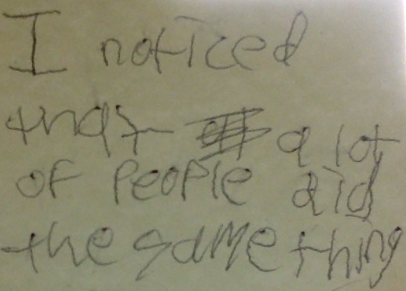 I noticed
that a lot
of people did
the same thing